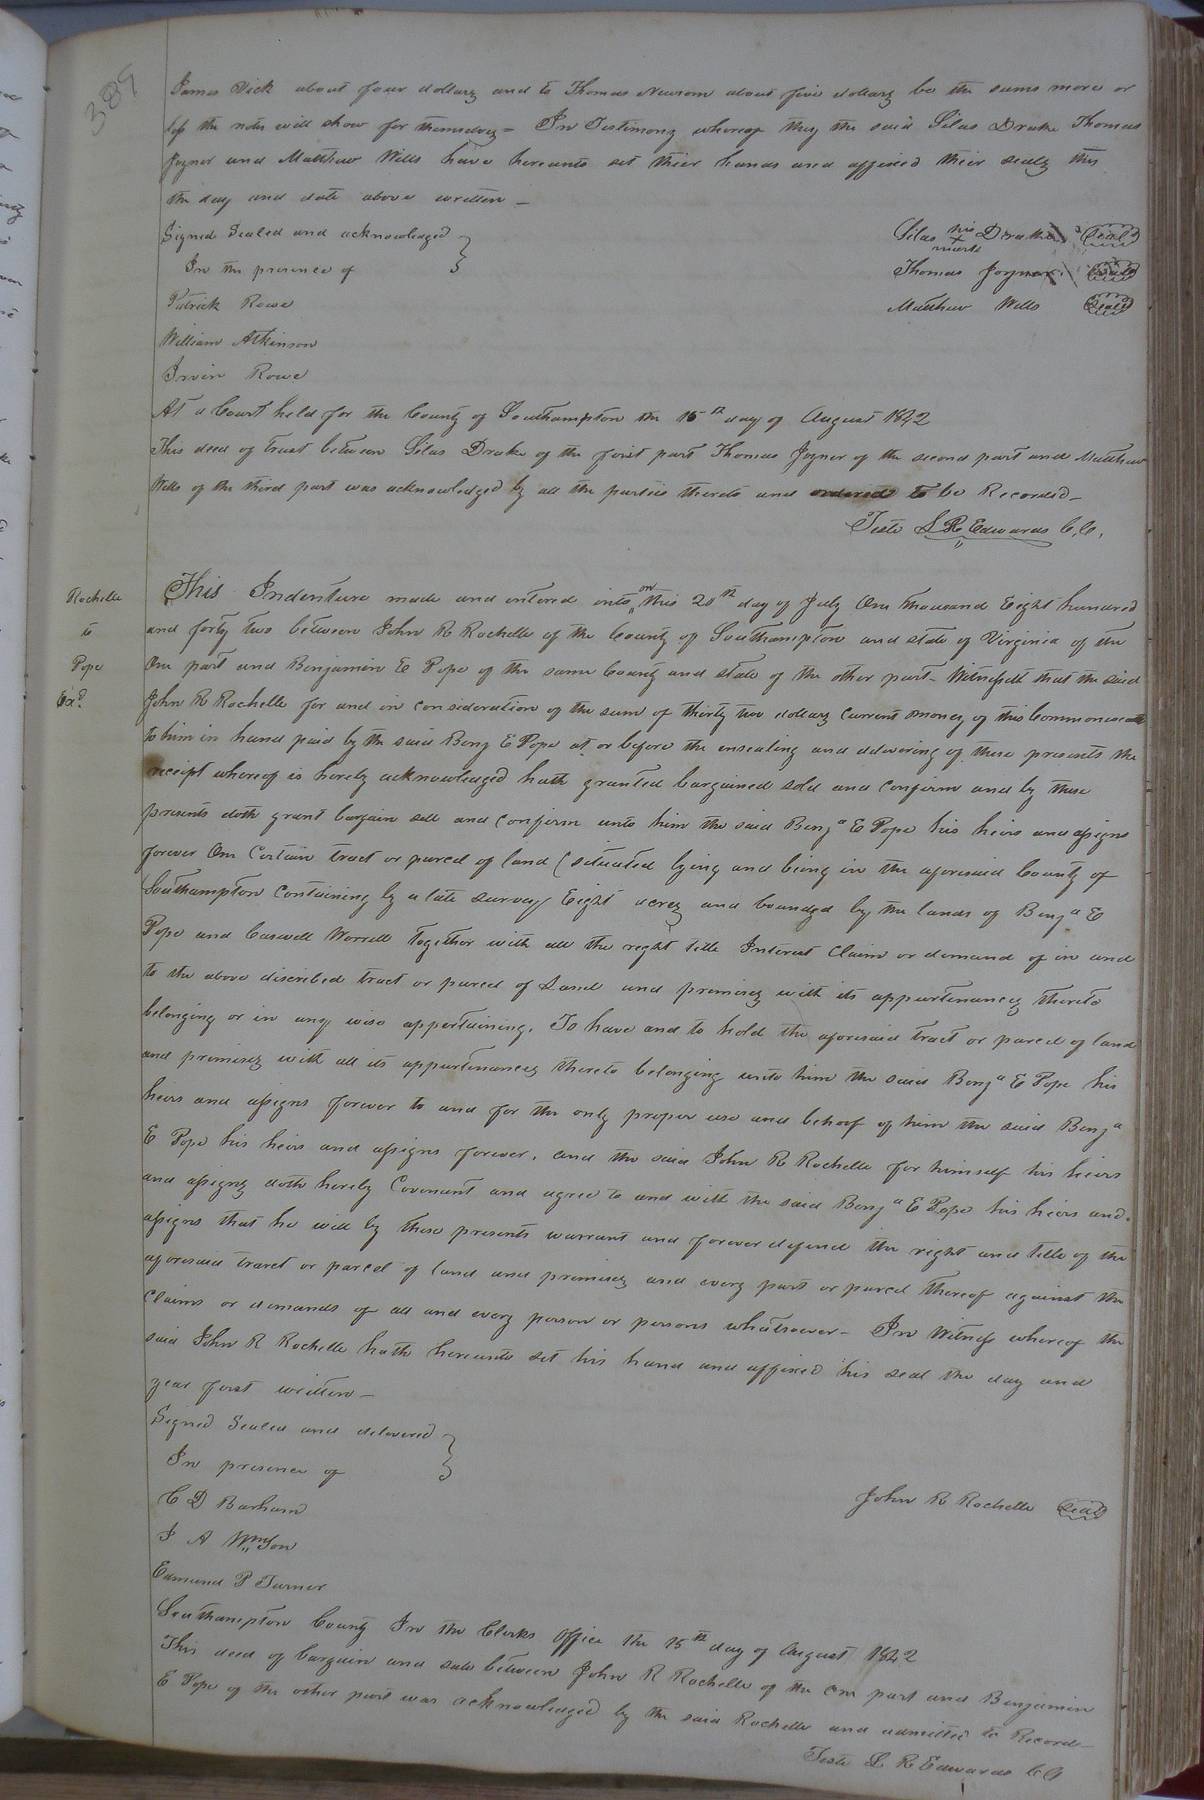 389
James Vick about four dollars and to Thomas Newsom about five dollars be the sums more or
less the notes will show for themselves = In Testimony whereof they the said Silas Drake Thomas
Joyner and Matthew Wills have hereunto set their hands and affixed their seals this
the day and date above written —
Signed Sealed and acknowledged
In the presence of
Silas his X mark Drake Seal
Thomas Joyner Seal
Patrick Rowe
Matthew Wills Seal
William Atkinson
Irvin Rowe
At a Court held for the County of Southampton the 15th day of August 1842
This deed of trust between Silas Drake of the first part Thomas Joyner of the second part and Matthew
Wills of the third part was acknowledged by all the parties thereto and ordered to be Recorded —
Teste L R Edwards C.C.
Rochelle
to
Pope
Exd.
This Indenture made and entered into on this 20th day of July One thousand Eight hundred
and forty two between John R Rochelle of the County of Southampton and state of Virginia of the
One part and Benjamin E Pope of the same County and state of the other part – Witnesseth that the said
John R Rochelle for and in consideration of the sum of thirty two dollars Current money of this Commonwealth
to him in hand paid by the said Benj E Pope at or before the ensealing and delivering of these presents the
receipt whereof is hereby acknowledged hath granted bargained sold and confirm and by these
presents doth grant bargain sell and confirm unto him the said Benja E Pope his heirs and assigns
forever One Certain tract or parcel of land (situated lying and being in the aforesaid County of
Southampton containing by a late survey Eight acres and bounded by the lands of Benja E
Pope and Caswell Worrell together with all the right title Interest Claim or demand of in and
to the above discribed tract or parcel of Land and premises with its appurtenances thereto
belonging or in any wise appertaining. To have and to hold the aforesaid tract or parcel of land
and premises with all its appurtenances thereto belonging unto him the said Benja E Pope his
heirs and assigns forever to and for the only proper use and behoof of him the said Benja
E Pope his heirs and assigns forever. and the said John R Rochelle for himself his heirs
and assigns doth hereby Covenant and agree to and with the said Benja E Pope his heirs and
assigns that he will by these presents warrant and forever defend the right and title of the
aforesaid tract or parcel of land and premises and every part or parcel thereof against the
claims or demands of all and every person or persons whatsoever – In Witness whereof the
said John R Rochelle hath hereunto set his hand and affixed his seal the day and
year first written —
Signed Sealed and delivered
In presence of
John R Rochelle Seal
C D Barham
J A Wmson
Edmund P Turner
Southampton County In the Clerks Office the 15th day of August 1842
This deed of bargain and sale between John R Rochelle of the One part and Benjamin
E Pope of the other part was acknowledged by the said Rochelle and admitted to Record —
Teste L R Edwards CC